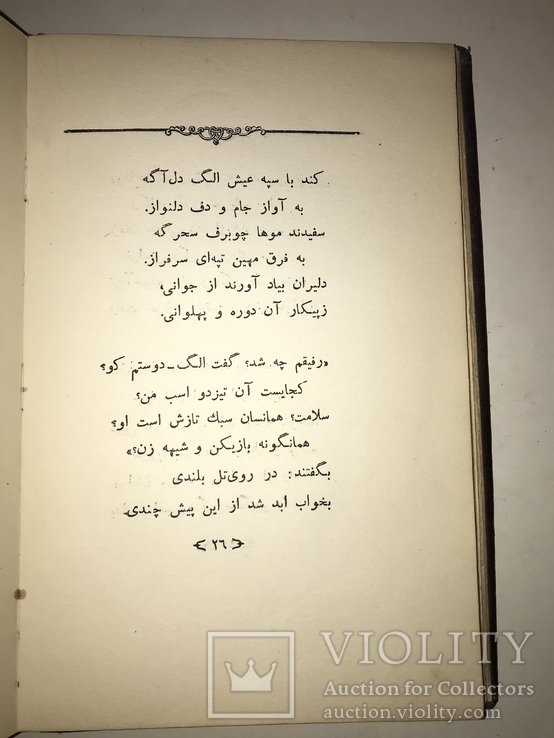 کند با سپه عیش الگ دل‌آگه
به آواز جام و دف دلنواز.
سفیدند موها چوبرف سحرگه
به فرق مهین تپه‌ای سرفراز.
دلیران بیاد آورند از جوانی،
زپیکار آن دوره و پهلوانی.
«رفیقم چه شد؟ گفت الگ ـ دوستم کو؟
کجایست آن تیزدو اسب من؟
سلامت؟ همانسان سبك تازش است او؟
همانگونه بازیکن و شیهه زن؟»
بگفتند: در روی‌تل بلندی
بخواب ابد شد از این پیش چندی.
۲٦
VIOLITY
Auction for Collectors
auction.violity.com